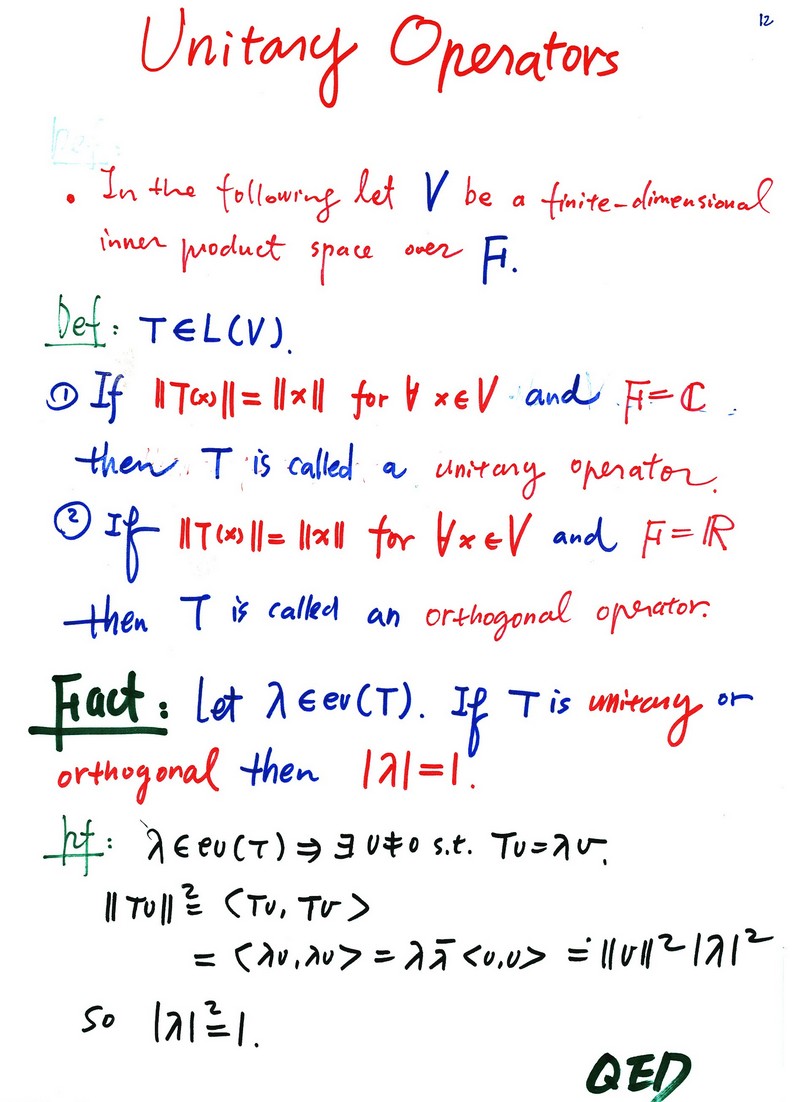 12
Unitary Operators
Def:
• In the following let V be a finite-dimensional
inner product space over F.
Def: T∈L(V).
① If ||T(x)||=||x|| for ∀ x∈V and F=ℂ
then T is called a unitary operator.
② If ||T(x)||=||x|| for ∀x∈V and F=ℝ
then T is called an orthogonal operator.
Fact: Let λ∈ev(T). If T is unitary or
orthogonal then |λ|=1.
pf: λ∈ev(T)⇒∃ v≠0 s.t. Tv=λv.
||Tv||²=⟨Tv, Tv⟩
=⟨λv,λv⟩=λλ̄<v,v>=||v||²|λ|²
so |λ|²=1.
QED